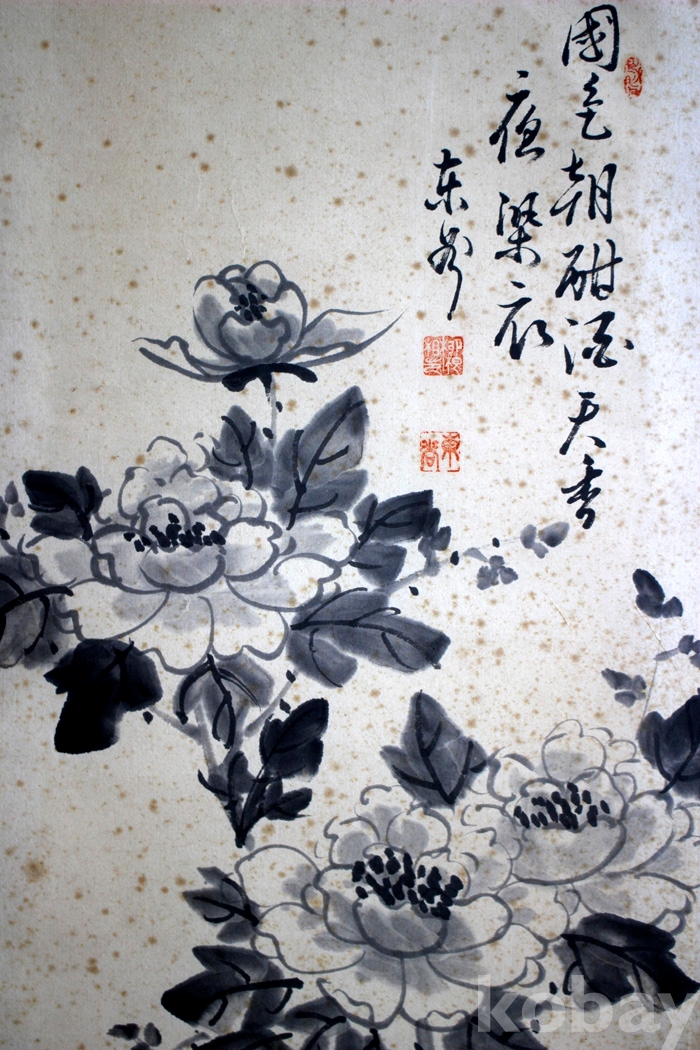 國色朝酣酒天香
夜染衣
東
kobay